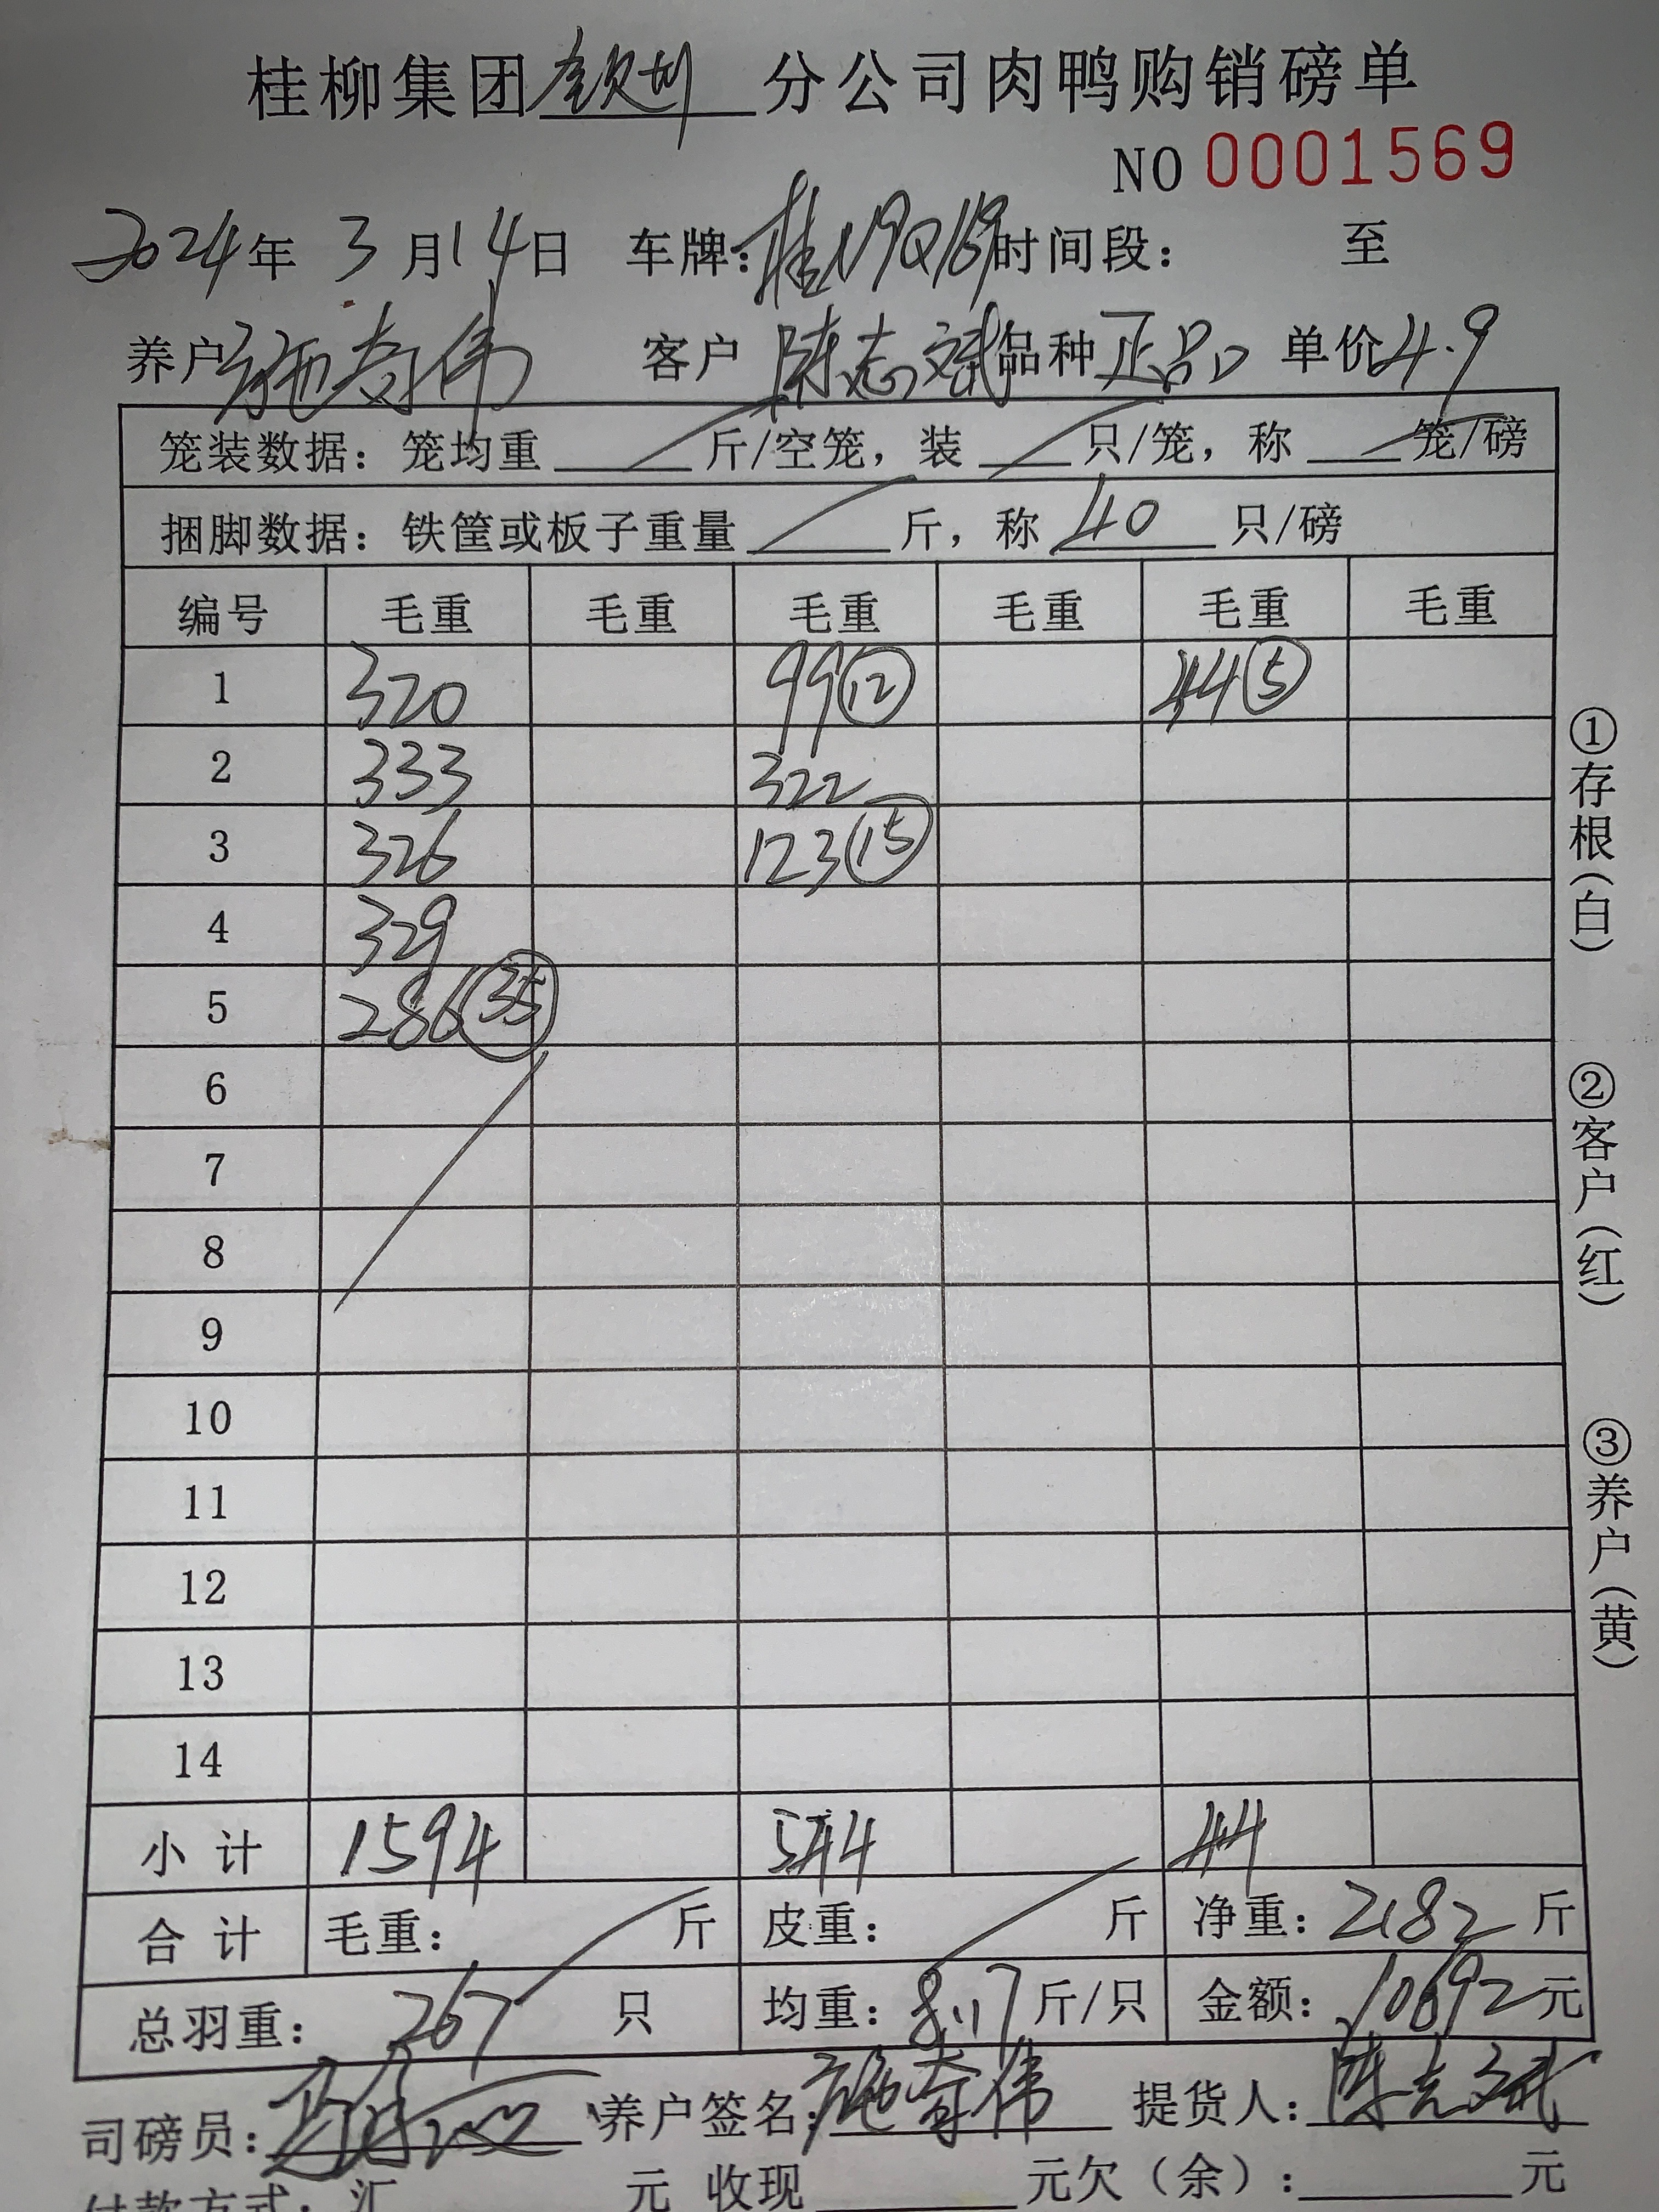 桂柳集团钦州分公司肉鸭购销磅单
NO 0001569
2024年 3月14日 车牌:桂N9Q169时间段: 至
养户施奇伟 客户 陈志斌品种正品 单价4.9
笼装数据:笼均重 斤/空笼,装 只/笼,称 笼/磅
捆脚数据:铁筐或板子重量 斤,称 40 只/磅
编号 毛重 毛重 毛重 毛重 毛重 毛重
1 320 99⑫ 44⑤
2 333 322
3 326 123⑮
4 329
5 286㉟
6
7
8
9
10
11
12
13
14
小计 1594 544 44
合计 毛重: 斤 皮重: 斤 净重:2182斤
总羽重: 267 只 均重:8.17斤/只 金额:10692元
司磅员: 养户签名:施奇伟 提货人:陈志斌
付款方式:汇 元 收现 元欠(余): 元
①存根(白)
②客户(红)
③养户(黄)